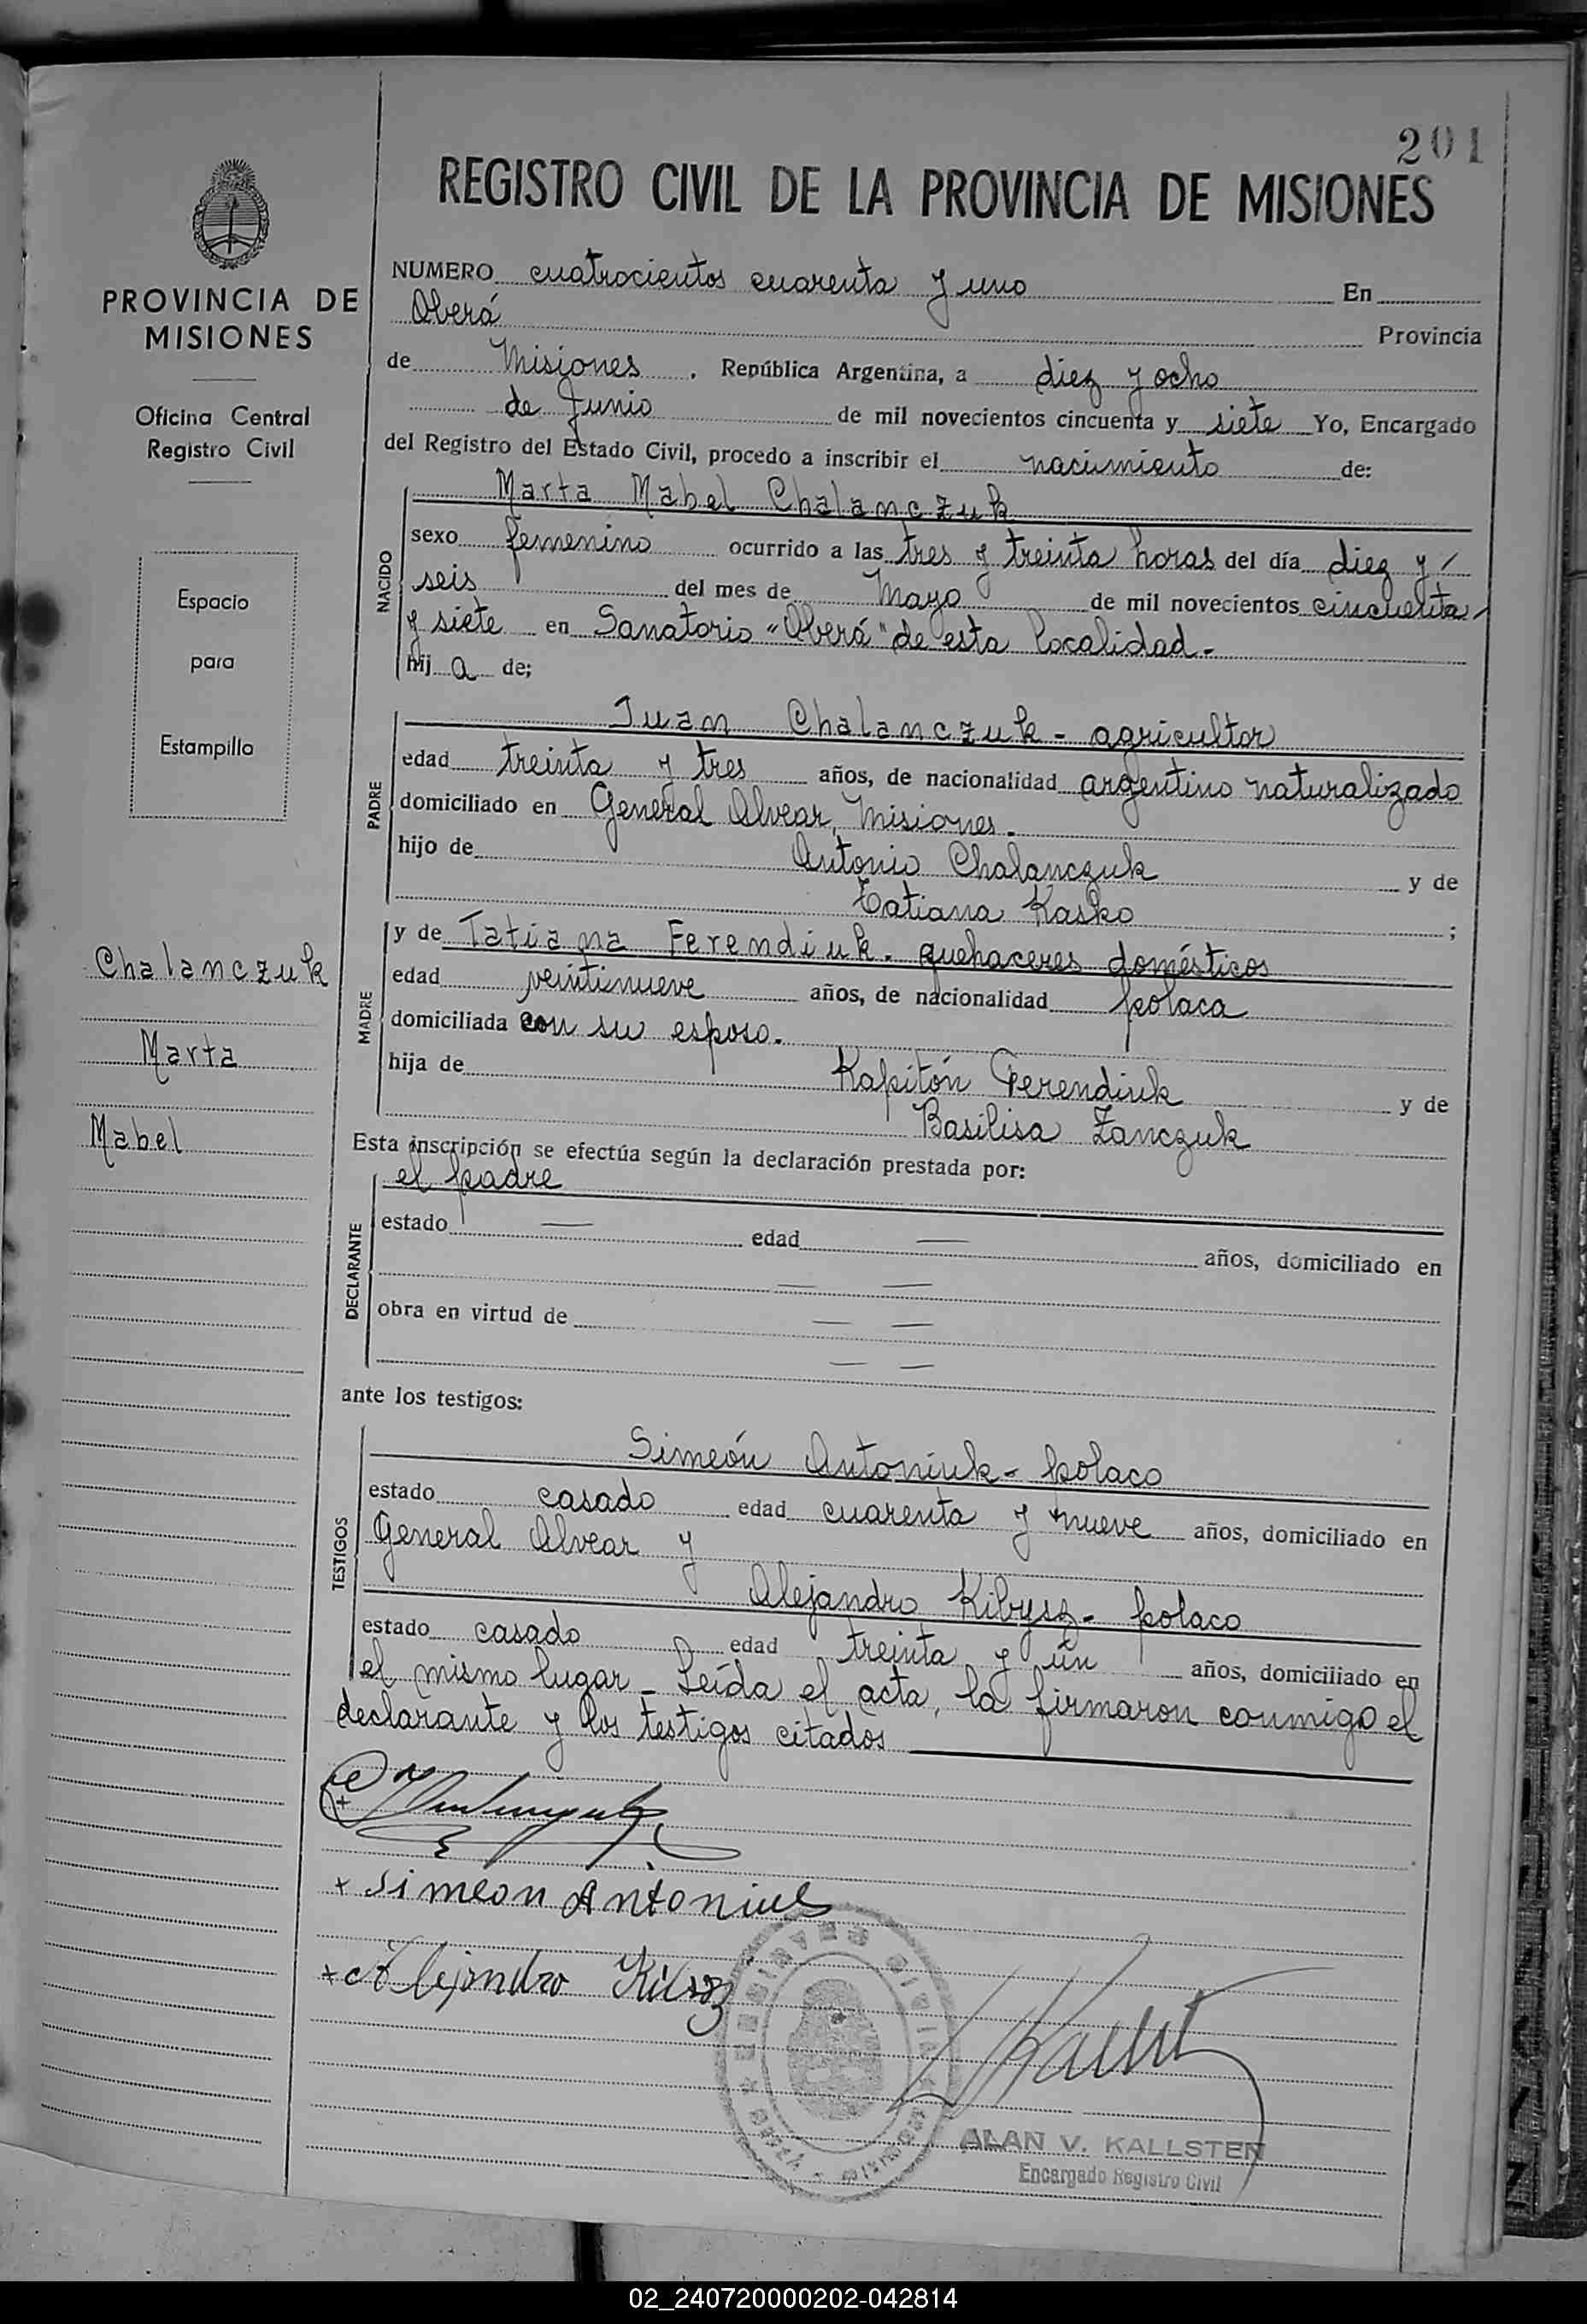 201
REGISTRO CIVIL DE LA PROVINCIA DE MISIONES
PROVINCIA DE
MISIONES
Oficina Central
Registro Civil
Espacio
para
Estampilla
Chalanczuk
Marta
Mabel
NUMERO cuatrocientos cuarenta y uno En
Oberá Provincia
de Misiones. República Argentina, a diez y ocho
de Junio de mil novecientos cincuenta y siete Yo, Encargado
del Registro del Estado Civil, procedo a inscribir el nacimiento de:
NACIDO
Marta Mabel Chalanczuk
sexo femenino ocurrido a las tres y treinta horas del día diez y
seis del mes de Mayo de mil novecientos cincuenta
y siete en Sanatorio "Oberá" de esta localidad.-
hij a de;
PADRE
Juan Chalanczuk - agricultor
edad treinta y tres años, de nacionalidad argentino naturalizado
domiciliado en General Alvear, Misiones.
hijo de Antonio Chalanczuk y de
Tatiana Kasko ;
MADRE
y de Tatiana Ferendiuk. quehaceres domésticos
edad veintinueve años, de nacionalidad polaca
domiciliada con su esposo.
hija de Kapitón Ferendiuk y de
Basilisa Zanczuk
Esta inscripción se efectúa según la declaración prestada por:
DECLARANTE
el padre
estado — edad — años, domiciliado en
— —
obra en virtud de — —
— —
ante los testigos:
TESTIGOS
Simeón Antoniuk - polaco
estado casado edad cuarenta y nueve años, domiciliado en
General Alvear y
Alejandro Kibysz - polaco
estado casado edad treinta y un años, domiciliado en
el mismo lugar - Leída el acta, la firmaron conmigo el
declarante y los testigos citados
+ Simeon Antoniuk
+ Alejandro
ALAN V. KALLSTEN
Encargado Registro Civil
02_240720000202-042814